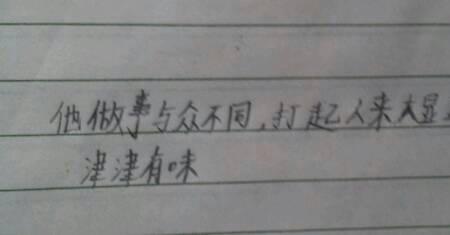 他做事与众不同,打起人来大显
津津有味